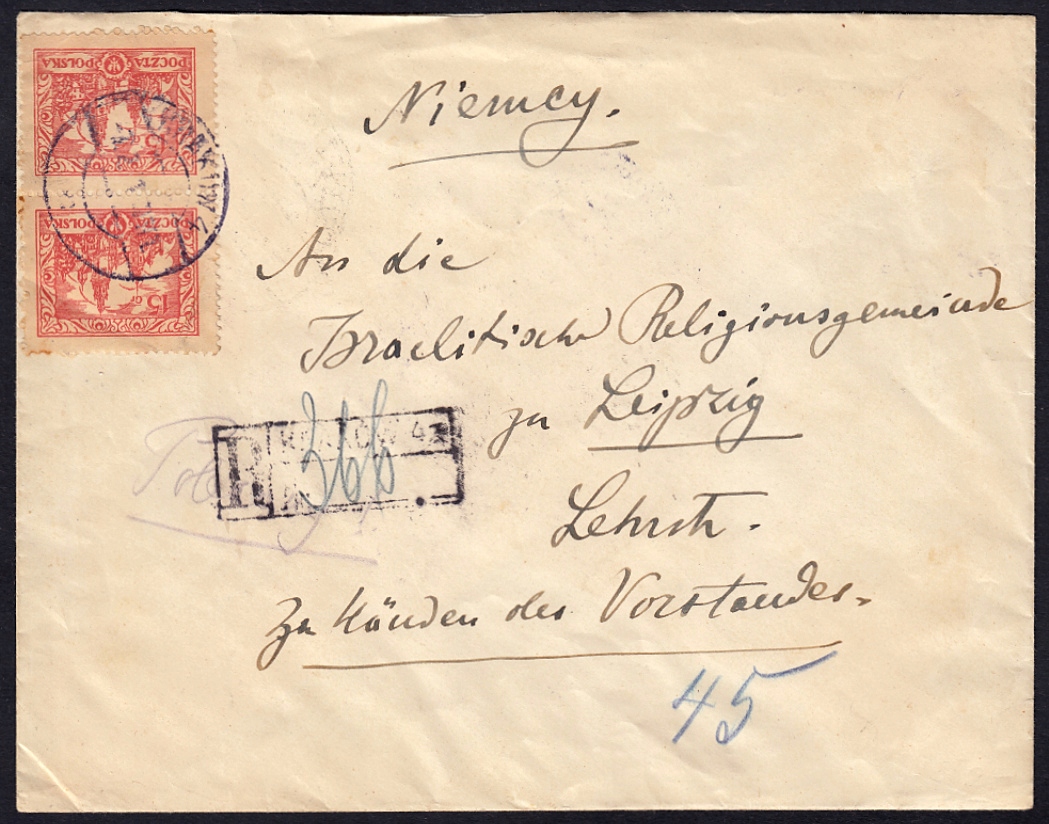 POCZTA POLSKA
15 GR
POCZTA POLSKA
15 GR
Niemcy.
An die
Israelitische Religionsgemeinde
zu Leipzig
R KRAKÓW 4
№ 366
Lehrstr.
Zu Händen des Vorstandes.
45